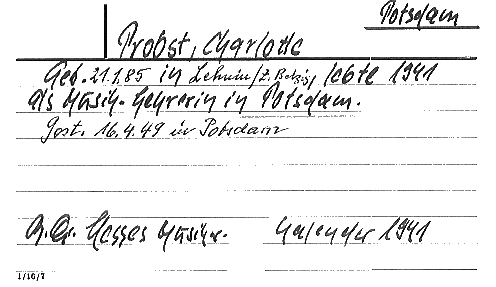 Potsdam
Probst, Charlotte
Geb. 21.1.85 in Lehnin/z. Belzig, lebte 1941
als Musik-Lehrerin in Potsdam.
Gest. 16.4.49 in Potsdam
Hesses Musiker-Kalender 1941
1/16/7